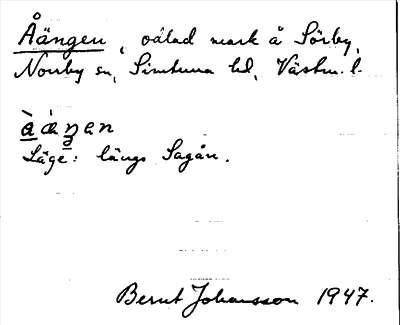 Åängen, odlad mark å Sörby,
Norrby sn, Simtuna hd, Västm. l.
å̀ǽŋen
Läge: längs Sagån.
Bernt Johansson 1947.